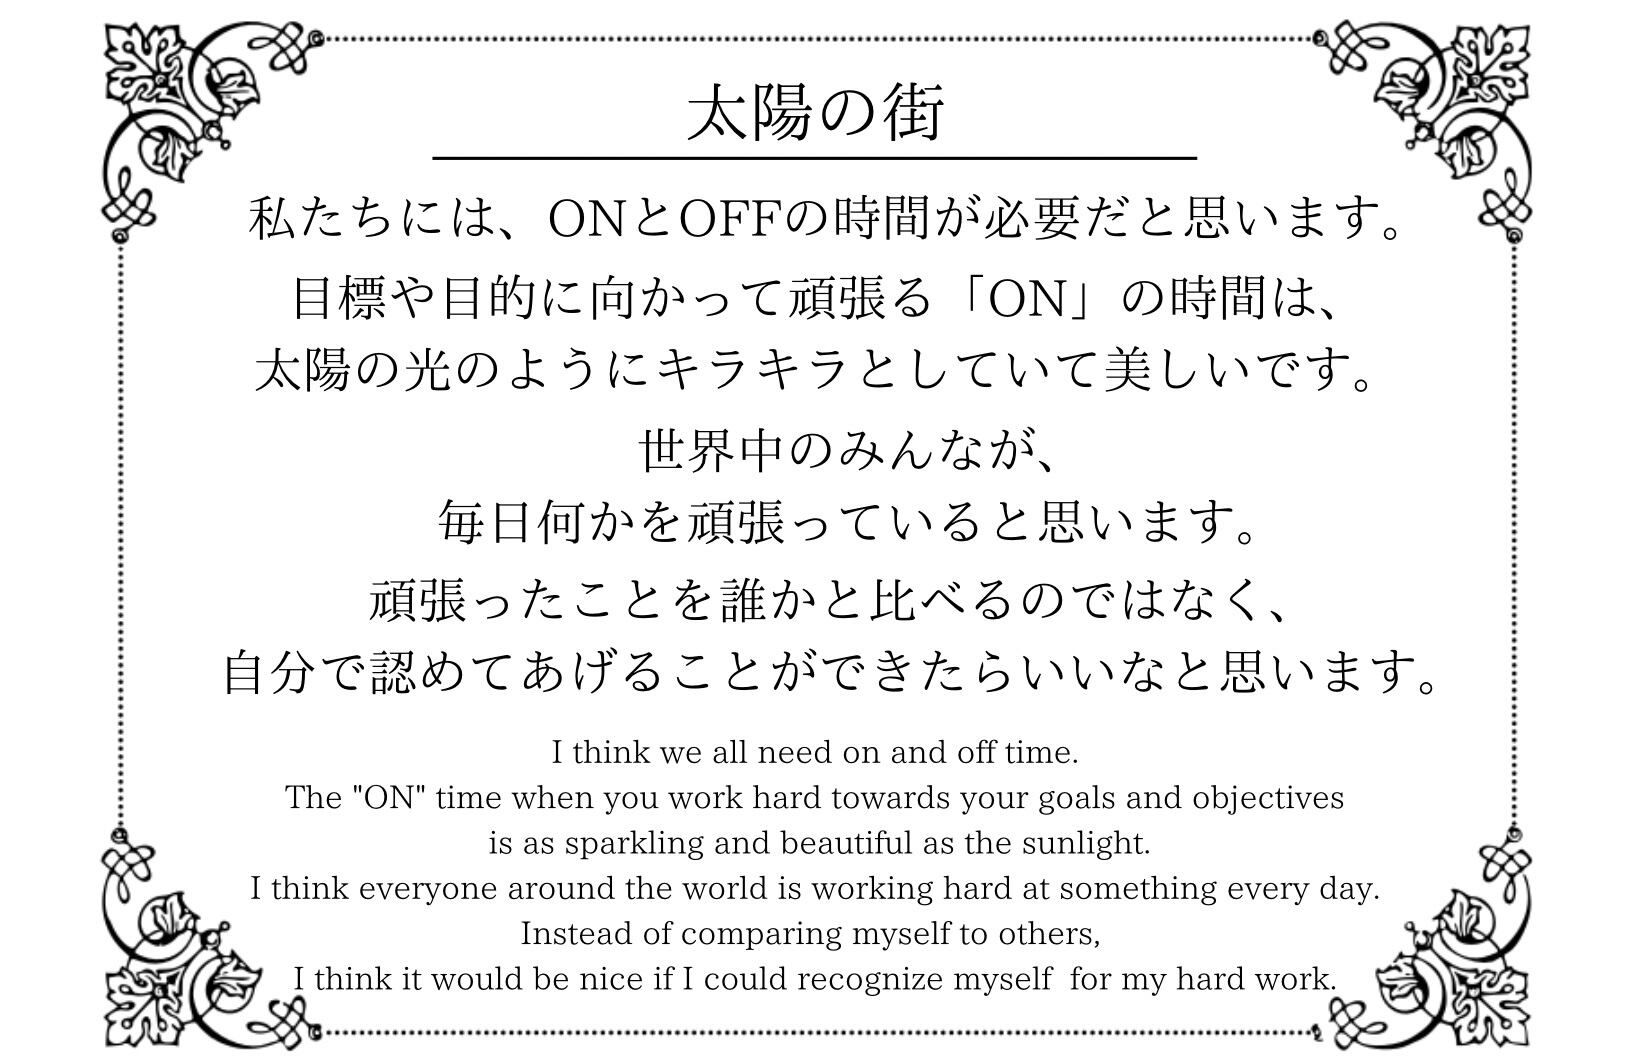 太陽の街
私たちには、ONとOFFの時間が必要だと思います。
目標や目的に向かって頑張る「ON」の時間は、
太陽の光のようにキラキラとしていて美しいです。
世界中のみんなが、
毎日何かを頑張っていると思います。
頑張ったことを誰かと比べるのではなく、
自分で認めてあげることができたらいいなと思います。
I think we all need on and off time.
The "ON" time when you work hard towards your goals and objectives
is as sparkling and beautiful as the sunlight.
I think everyone around the world is working hard at something every day.
Instead of comparing myself to others,
I think it would be nice if I could recognize myself  for my hard work.